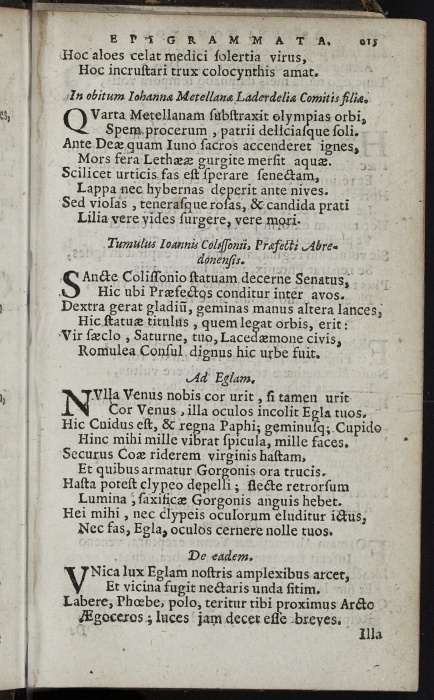 EPIGRAMMATA. 015
Hoc aloes celat medici solertia virus,
Hoc incrustari trux colocynthis amat.
In obitum Iohannæ Metellanæ Laderdeliæ Comitis filiæ.
QVarta Metellanam substraxit olympias orbi,
Spem procerum, patrii deliciasque soli.
Ante Deæ quam Iuno sacros accenderet ignes,
Mors fera Lethææ gurgite mersit aquæ.
Scilicet urticis fas est sperare senectam,
Lappa nec hybernas deperit ante nives.
Sed violas, tenerasque rosas, & candida prati
Lilia vere vides surgere, vere mori.
Tumulus Ioannis Colissonii, Præfecti Abre-
donensis.
SAncte Colissonio statuam decerne Senatus,
Hic ubi Præfectos conditur inter avos.
Dextra gerat gladiū, geminas manus altera lances,
Hic statuæ titulus, quem legat orbis, erit:
Vir sæclo, Saturne, tuo, Lacedæmone civis,
Romulea Consul dignus hic urbe fuit.
Ad Eglam.
NVlla Venus nobis cor urit, si tamen urit
Cor Venus, illa oculos incolit Egla tuos.
Hic Cnidus est, & regna Paphi; geminusq; Cupido
Hinc mihi mille vibrat spicula, mille faces.
Securus Coæ riderem virginis hastam,
Et quibus armatur Gorgonis ora trucis.
Hasta potest clypeo depelli; flecte retrorsum
Lumina, saxificæ Gorgonis anguis hebet.
Hei mihi, nec clypeis oculorum eluditur ictus,
Nec fas, Egla, oculos cernere nolle tuos.
De eadem.
VNica lux Eglam nostris amplexibus arcet,
Et vicina fugit nectaris unda sitim.
Labere, Phœbe, polo, teritur tibi proximus Arcto
Ægoceros; luces jam decet esse breves.
Illa